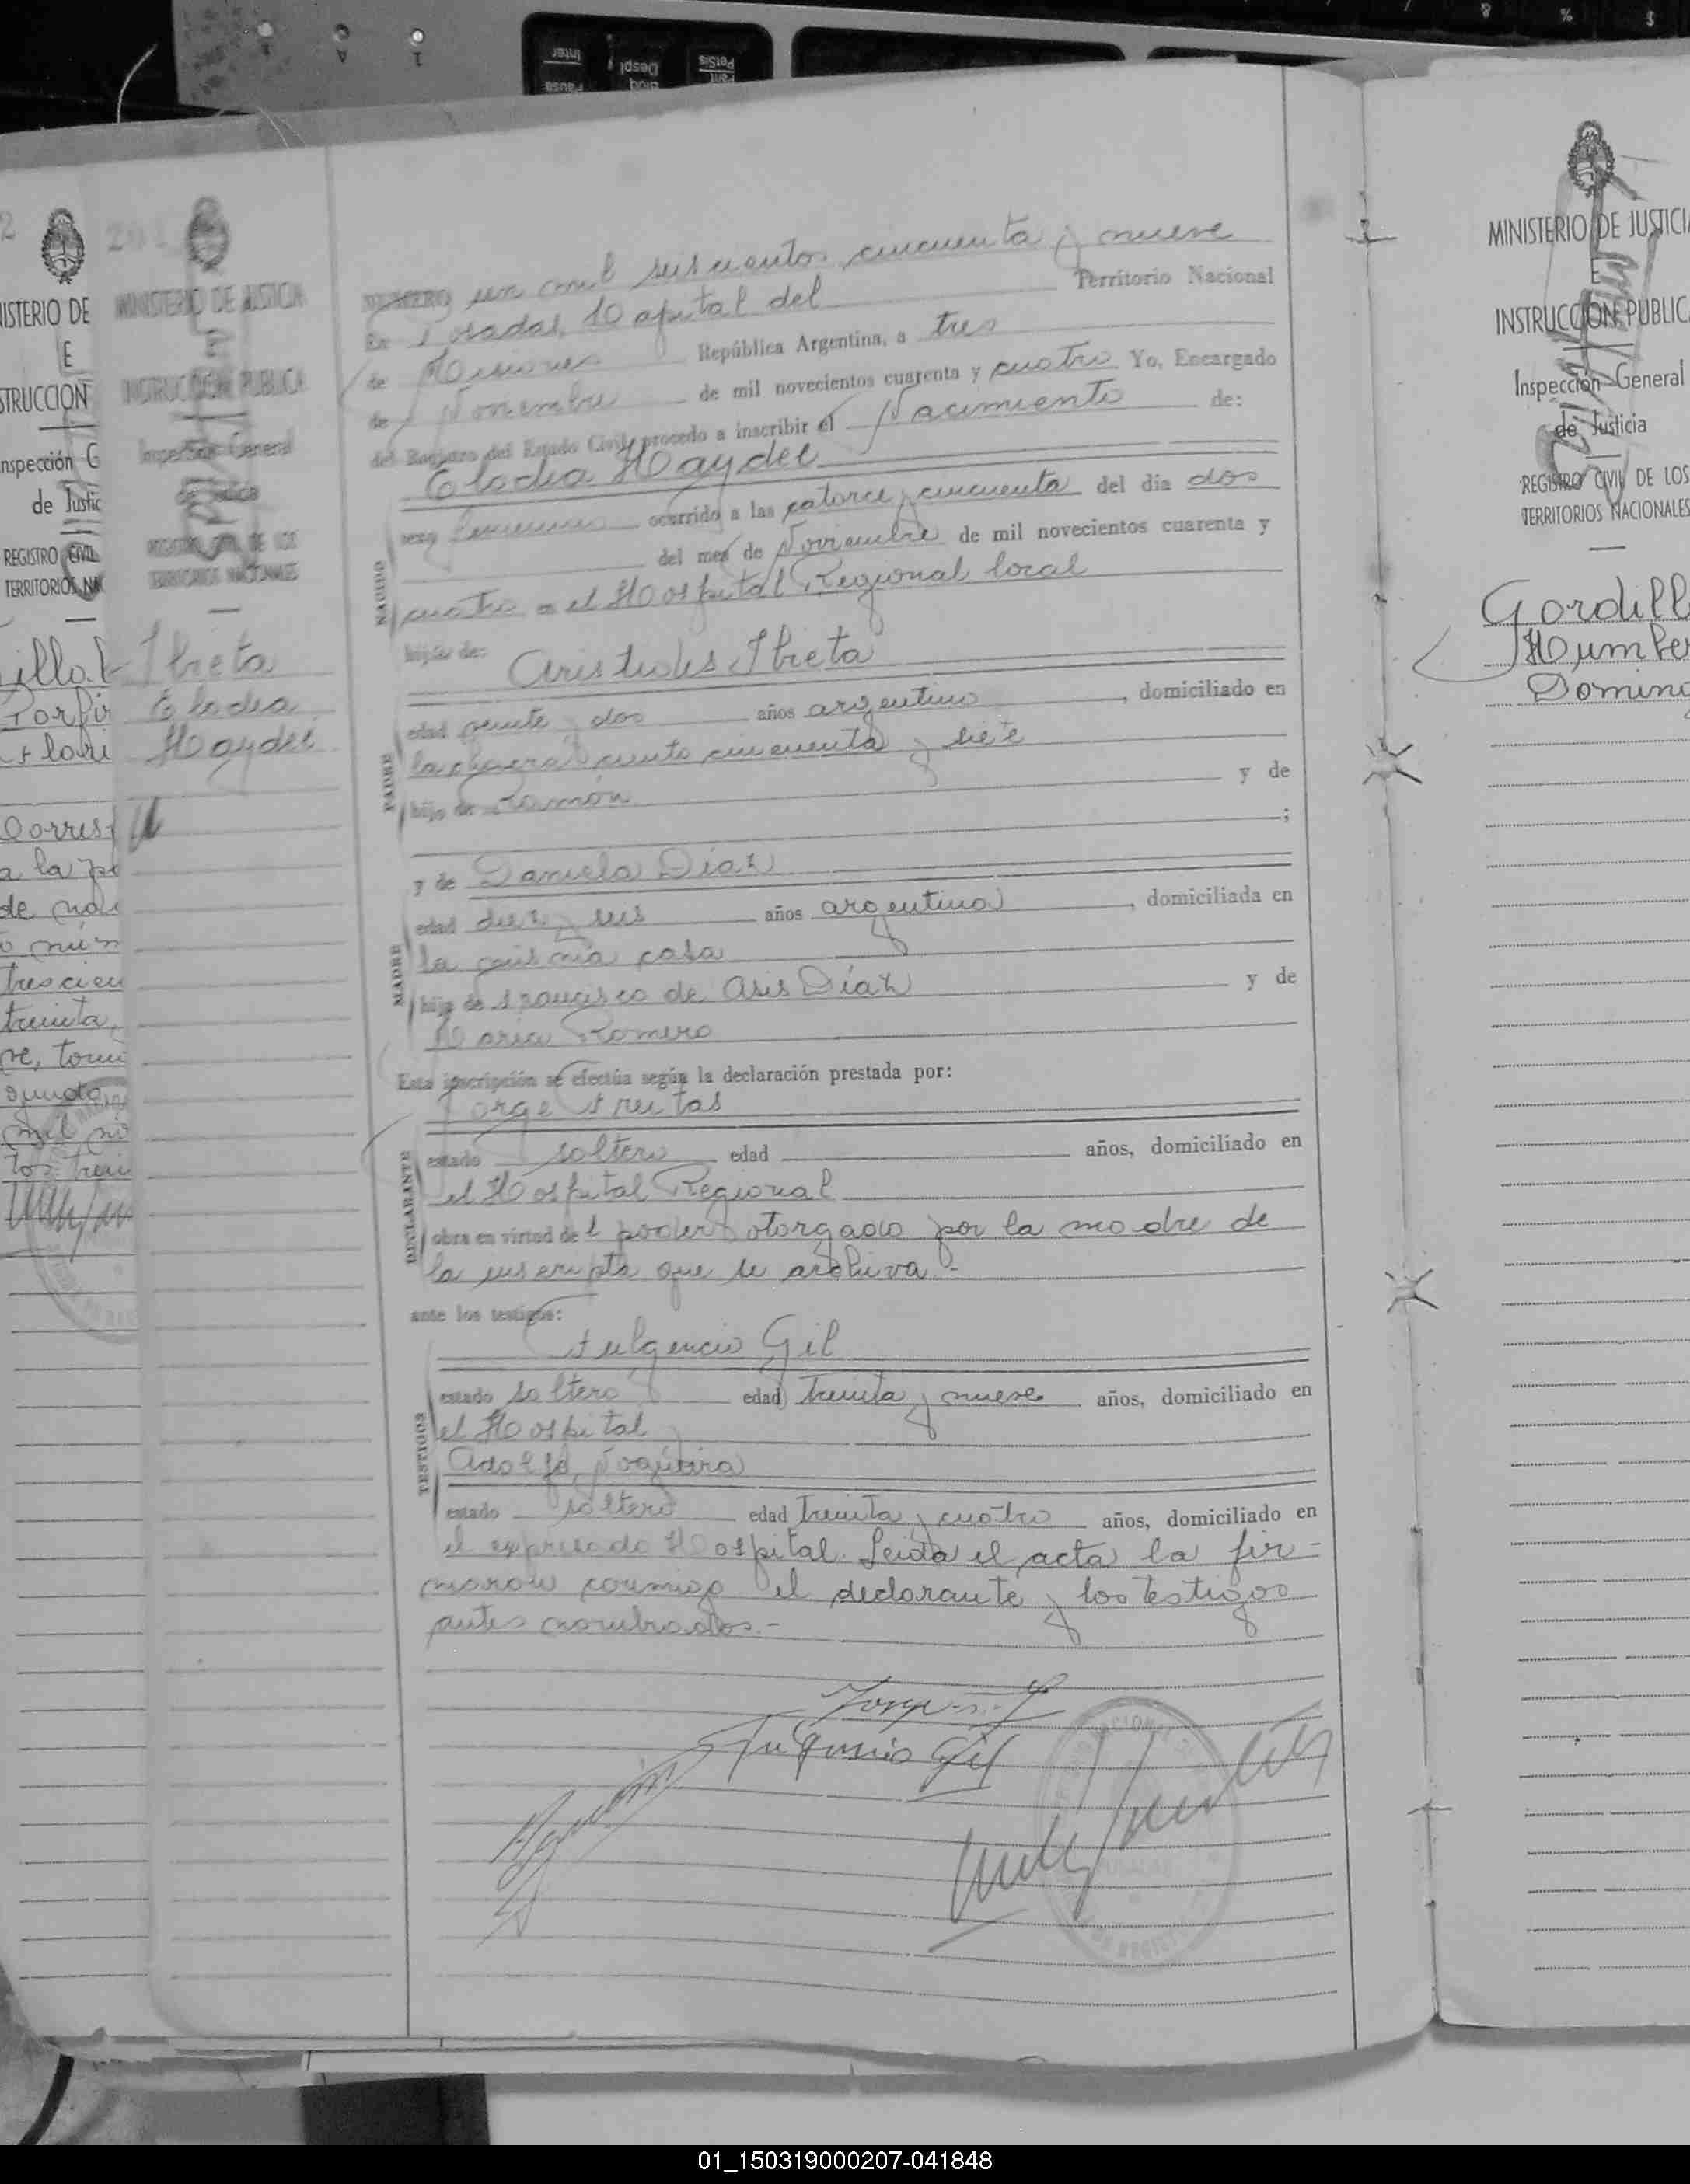 MINISTERIO DE JUSTICIA
E
INSTRUCCION PUBLICA
Inspección General
de Justicia
REGISTRO CIVIL DE LOS
TERRITORIOS NACIONALES
Ibieta
Elodia
Haydeé
NUMERO un mil seiscientos cincuenta y nueve
En Posadas, Capital del Territorio Nacional
de Misiones República Argentina, a tres
de Noviembre de mil novecientos cuarenta y cuatro Yo, Encargado
del Registro del Estado Civil, procedo a inscribir el Nacimiento de:
Elodia Haydeé
sexo femenino ocurrido a las catorce y cincuenta del dia dos
del mes de Noviembre de mil novecientos cuarenta y
NACIDO
cuatro en el Hospital Regional local
hija de:
Aristides Ibieta
edad veinte y dos años argentino, domiciliado en
PADRE
la chacra ciento cincuenta y siete
hijo de Ramón y de
;
y de Daniela Díaz
edad diez y seis años argentina, domiciliada en
MADRE
la misma casa
hija de Francisco de Asis Díaz y de
Maria Romero
Esta inscripción se efectúa según la declaración prestada por:
Jorge Freitas
estado soltero edad años, domiciliado en
DECLARANTE
el Hospital Regional
obra en virtud del poder otorgado por la madre de
la inscripta que se archiva.-
ante los testigos:
Fulgencio Gil
estado soltero edad treinta y nueve años, domiciliado en
TESTIGOS
el Hospital
Adolfo Noguera
estado soltero edad treinta y cuatro años, domiciliado en
el expresado Hospital. Leida el acta la fir-
maron conmigo el declarante y los testigos
antes nombrados.-
Fulgencio Gil
MINISTERIO DE JUSTICIA
E
INSTRUCCION PUBLICA
Inspección General
de Justicia
REGISTRO CIVIL DE LOS
TERRITORIOS NACIONALES
Gordill
Humber
Doming
01_150319000207-041848